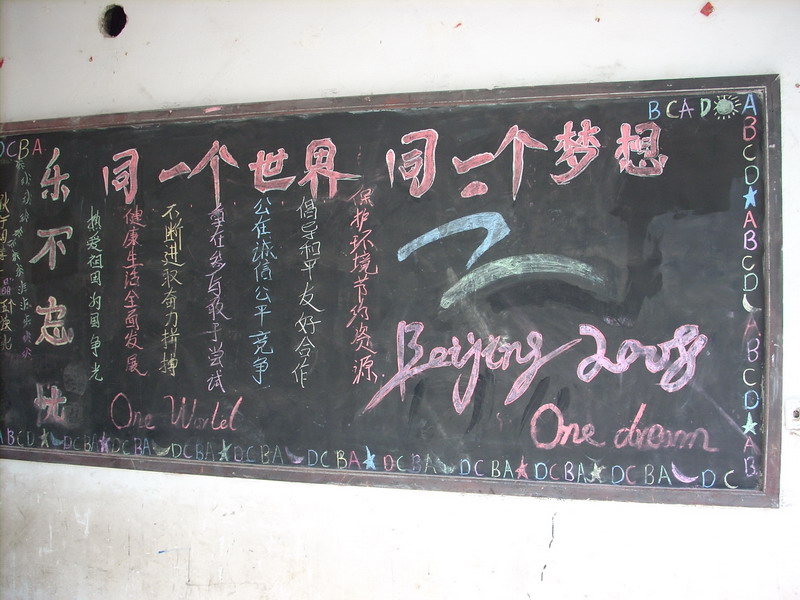 BCAD
A
B
C
D
A
B
C
D
A
B
C
D
A
B
DCBA
同一个世界 同一个梦想
保护环境节约资源
倡导和平友好合作
公在诚信公平竞争
重在参与敢于尝试
不断进取奋力拼搏
健康生活全面发展
热爱祖国为国争光
乐不忘忧
Beijing 2008
One World
One dream
ABCD DCBA DCBA DCBA DCBA DCBA DCBA DCBA DCBA DCBA DC